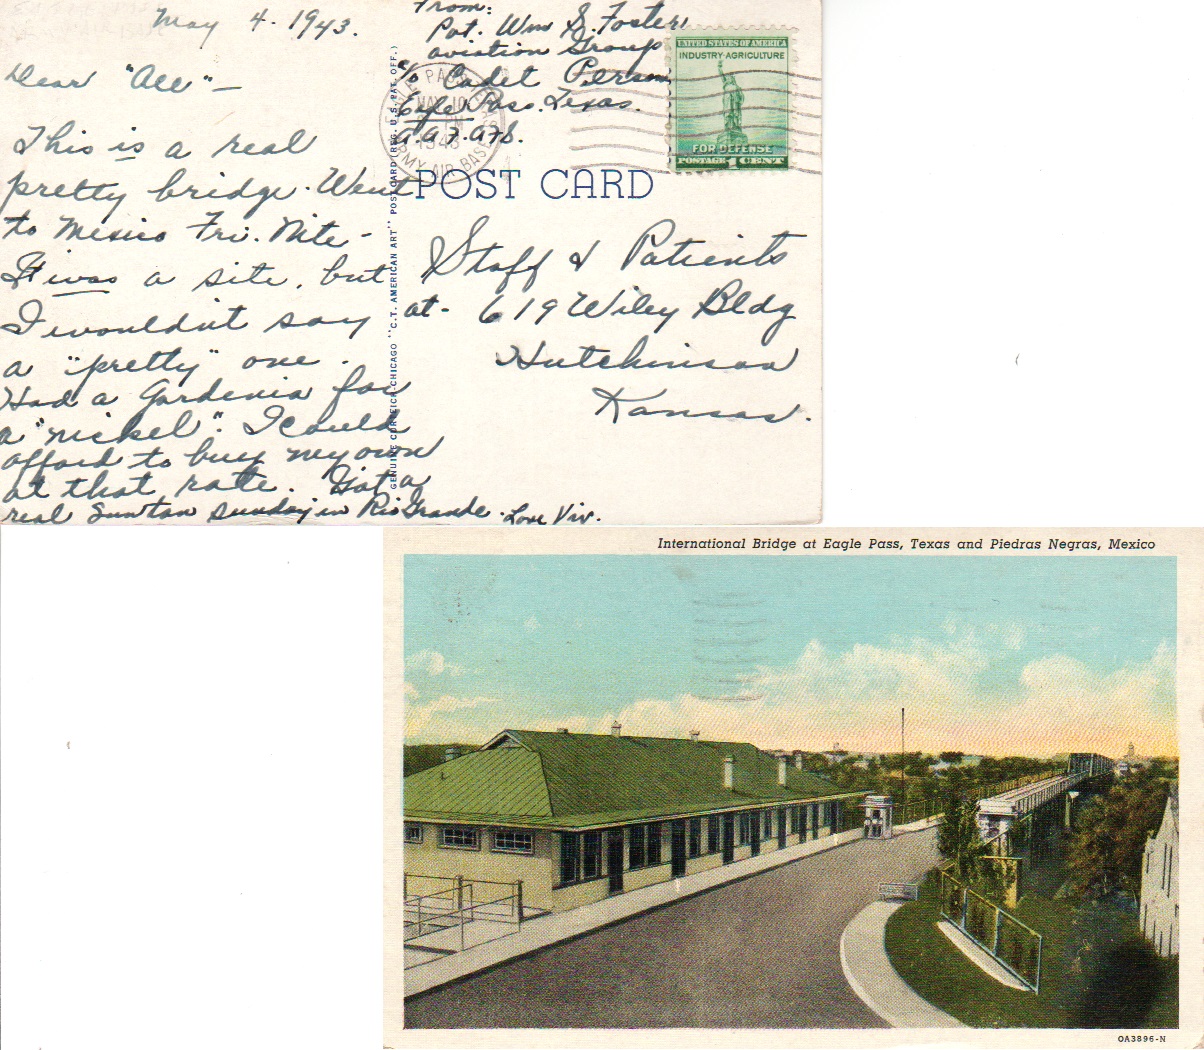 May 4 - 1943.
Dear "All" –
This is a real
pretty bridge. Went
to Mexico Fri. Nite –
It was a site, but
I wouldn't say
a "pretty" one.
Had a Gardenia for
a "nickel". I could
afford to buy my own
at that rate. Got a
real suntan Sunday in Rio Grande. Love Viv.
From:
Pvt. Wm S. Foster
aviation Group
c/o Cadet
Eagle Pass, Texas.
EAGLE PASS TEXAS
MAY 10
PM
1943
ARMY AIR BASE
UNITED STATES OF AMERICA
INDUSTRY-AGRICULTURE
FOR DEFENSE
POSTAGE 1 CENT
POST CARD
GENUINE CURTEICH-CHICAGO "C.T. AMERICAN ART" POST CARD (REG. U.S. PAT. OFF.)
Staff & Patients
at - 619 Wiley Bldg
Hutchinson
Kansas.
International Bridge at Eagle Pass, Texas and Piedras Negras, Mexico
OA3896-N